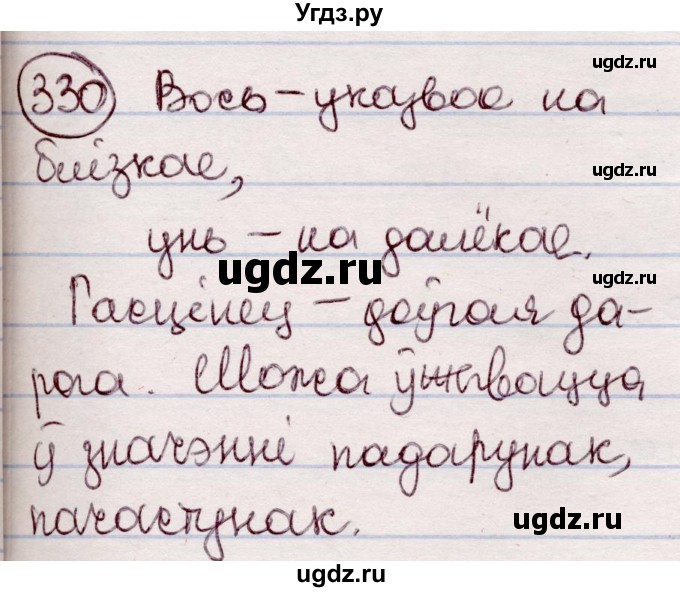 Угдз.ру
ugdz.ru
330 Вось – указвае на
ugdz.ru
блізкае,
унь – на далёкае.
ugdz.ru
ugdz.ru
Гасцінец – доўгая да-
рога. Можа ўжывацца
ugdz.ru
ў значэнні падарунак,
пачастунак.
ugdz.ru
ugdz.ru